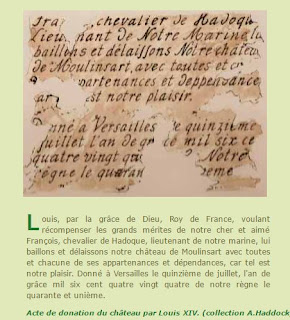 chevalier de Hadoqu
nant de Notre Marine, lu
baillons et délaiſſons Notre châte
de Moulinsart, avec toutes et
partenances et
est notre plaisir.
nné à Versailles le quinzième
juillet l'an de gr ce mil six ce
quatre vingt qu Notre
règne le quaran ieme
Louis, par la grâce de Dieu, Roy de France, voulant
récompenser les grands mérites de notre cher et aimé
François, chevalier de Hadoque, lieutenant de notre marine, lui
baillons et délaissons notre château de Moulinsart avec toutes
et chacune de ses appartenances et dépendances, car tel est
notre plaisir. Donné à Versailles le quinzième de juillet, l'an de
grâce mil six cent quatre vingt quatre de notre règne le
quarante et unième.
Acte de donation du château par Louis XIV. (collection A.Haddock